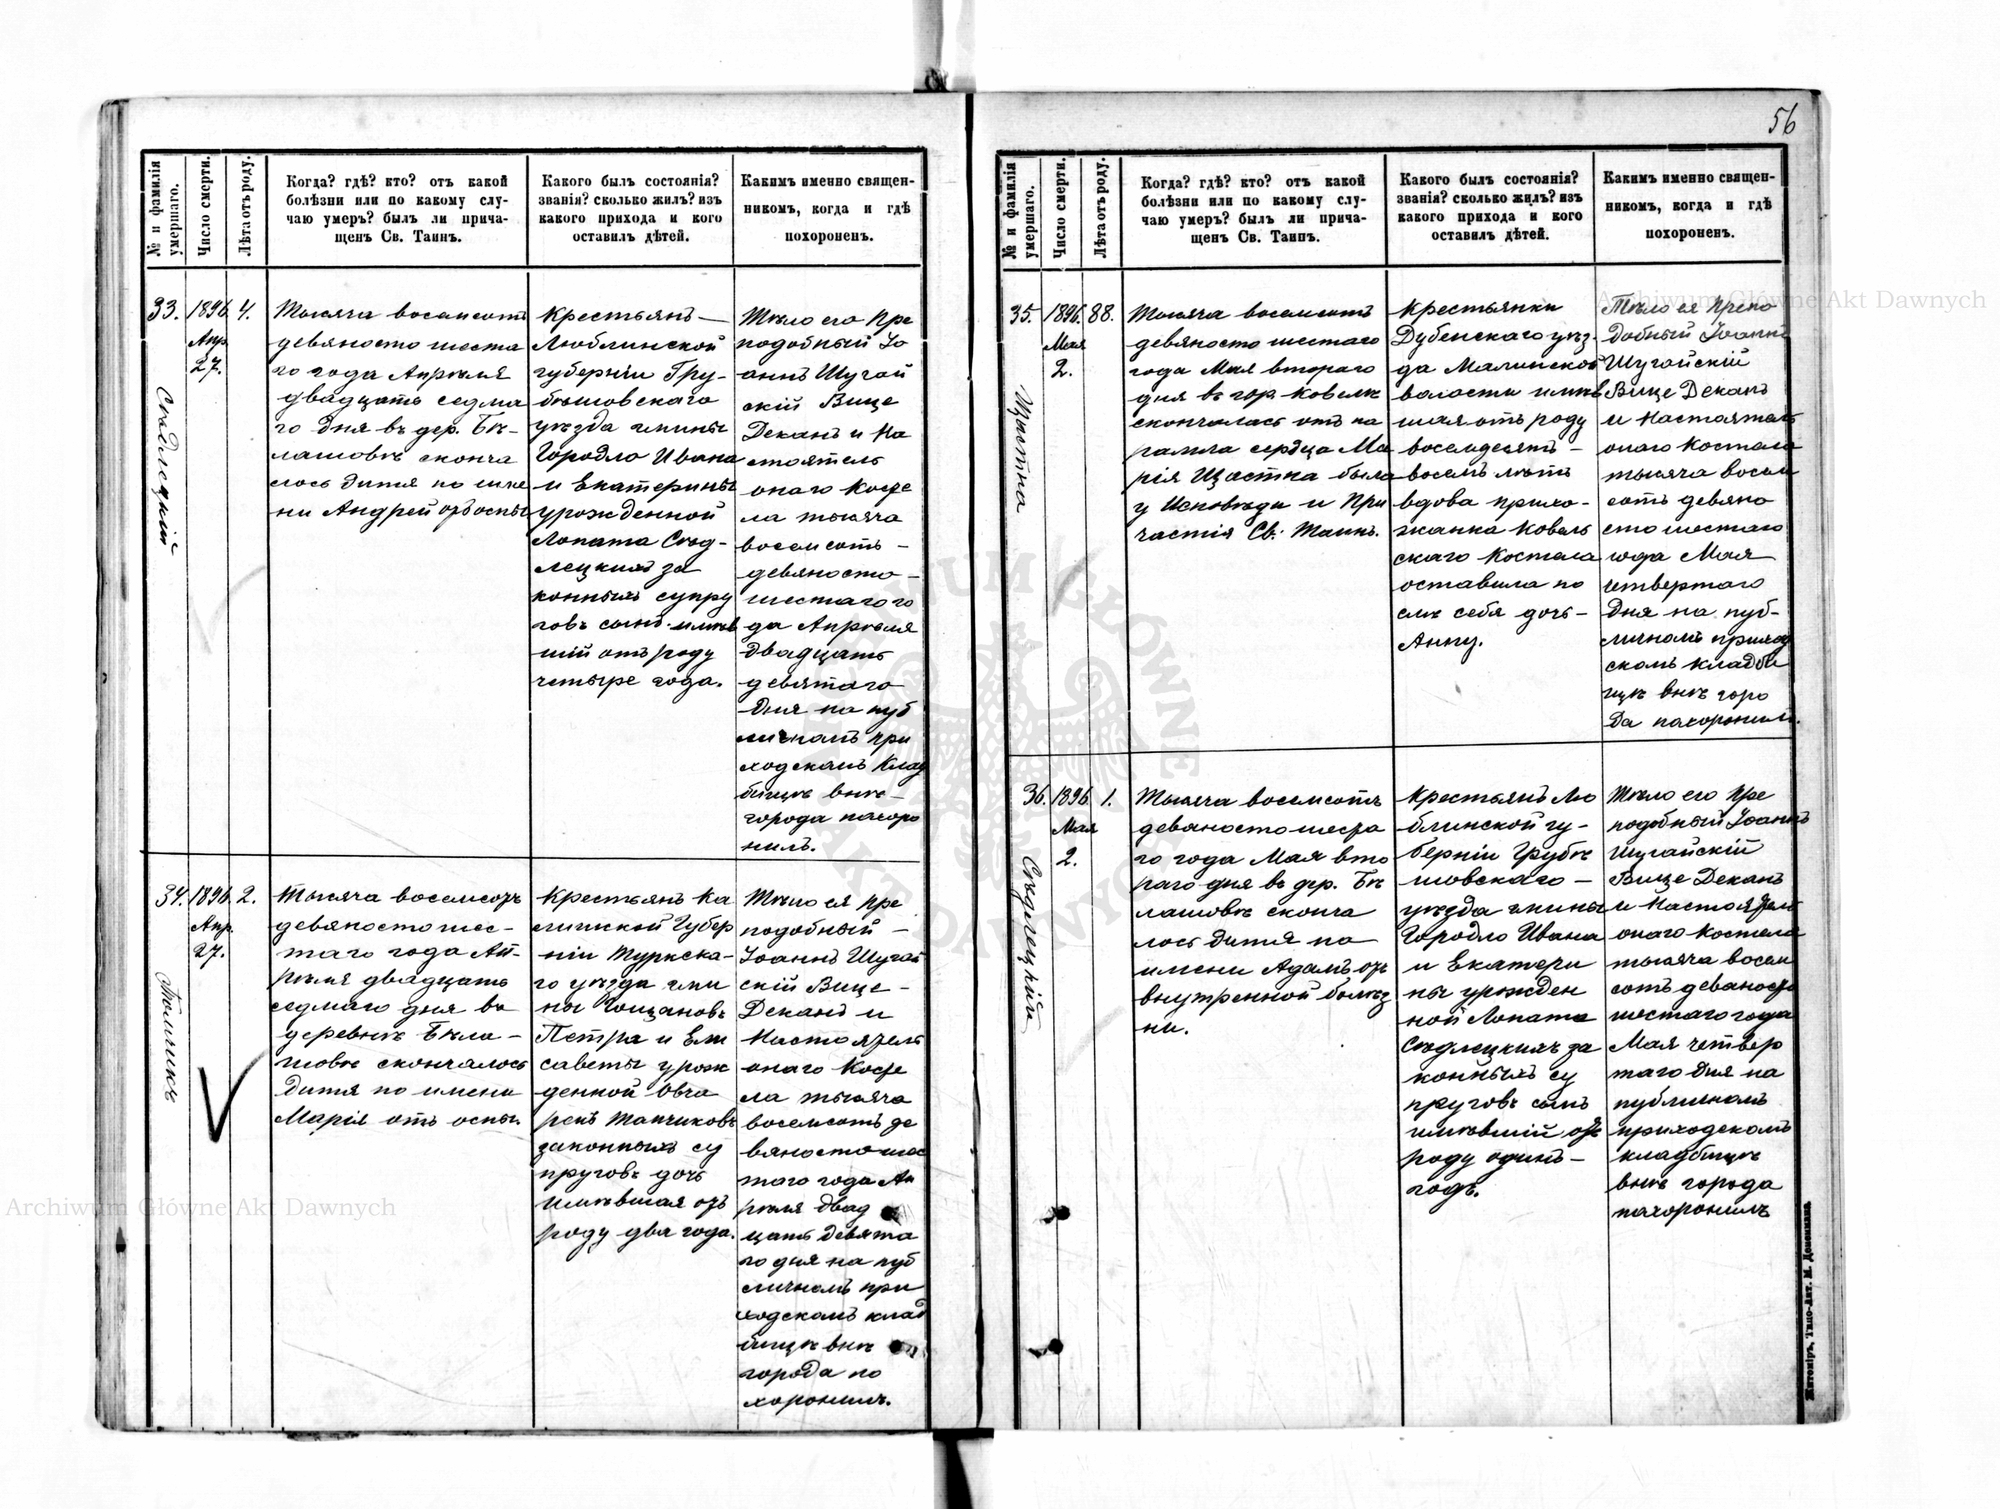 56
№ и фамилія умершаго.
Число смерти.
Лѣта отъ роду.
Когда? гдѣ? кто? отъ какой
болѣзни или по какому слу-
чаю умеръ? былъ ли прича-
щенъ Св. Таинъ.
Какого былъ состоянія?
званія? сколько жилъ? изъ
какого прихода и кого
оставилъ дѣтей.
Каким именно священ-
никомъ, когда и гдѣ
похороненъ.
33.
Сѣдлецкій
1896
Апр.
27.
4.
Тысяча восемсотъ
девяносто шеста
го года Апрѣля
двадцать седма
го дня въ дер. Бѣ-
лашовкѣ сконча
лось дитя по име
ни Андрей отъ оспы
Крестьянъ —
Люблинской
губерніи Гру-
бешовскаго
уѣзда гмины
Городло Ивана
и Екатерины
урожденной
Лопата Сѣд-
лецкихъ за
конныхъ супру
говъ сынъ имѣв
шій отъ роду
четыре года.
Тѣло его Пре
подобный Іо
аннъ Шугай
скій Вице
Деканъ и На
стоятель
онаго Косте
ла тысяча
восемсотъ —
девяносто —
шестаго го
да Апрѣля
двадцать
девятаго
дня на пуб
личномъ при
ходскомъ Клад
бищѣ внѣ —
города похоро
нилъ.
34.
1896
Апр.
27.
2.
Тысяча восемсотъ
девяносто шес-
таго года Ап-
рѣля двадцать
седмаго дня въ
деревнѣ Бѣла-
шовкѣ скончалось
дитя по имени
Марія отъ оспы.
Крестьянъ Ка
лишской Губер
ніи Туркска-
го уѣзда гми
ны Гощановъ
Петра и Ели
саветы урож
денной Овча
рекъ
законныхъ су
пруговъ дочь
имѣвшая отъ
роду два года.
Тѣло ея Пре
подобный —
Іоаннъ Шугай
скій Вице-
Деканъ и
Настоятель
онаго Косте
ла тысяча
восемсотъ де
вяносто шес
таго года Ап
рѣля двад
цать девята
го дня на пуб
личномъ при
ходскомъ клад
бищѣ внѣ
города по
хоронилъ.
№ и фамилія умершаго.
Число смерти.
Лѣта отъ роду.
Когда? гдѣ? кто? отъ какой
болѣзни или по какому слу-
чаю умеръ? былъ ли прича-
щенъ Св. Таинъ.
Какого былъ состоянія?
званія? сколько жилъ? изъ
какого прихода и кого
оставилъ дѣтей.
Каким именно священ-
никомъ, когда и гдѣ
похороненъ.
35.
1896
Мая
2.
88.
Тысяча восемсотъ
девяносто шестаго
года Мая втораго
дня въ гор. Ковелѣ
скончалась отъ па
ралича сердца Ма
рія Щастна была
у Исповѣди и При
частія Св. Таинъ.
Крестьянка
Дубенскаго уѣз-
да Малинской
волости имѣв
шая отъ роду
восемдесятъ —
восемь лѣтъ
вдова прихо-
жанка Ковель
скаго Костела
оставила по
слѣ себя дочь —
Анну.
Тѣло ея Препо
добный Іоаннъ
Шугайскій
Вице Деканъ
и Настоятель
онаго Костела
тысяча восем
сотъ девяно
сто шестаго
года Мая
четвертаго
дня на пуб-
личномъ приход
скомъ кладби
щѣ внѣ горо
да похоронилъ.
36.
Сѣдлецкій
1896
Мая
2.
1.
Тысяча восемсотъ
девяносто шеста
го года Мая вто
раго дня въ дер. Бѣ
лашовкѣ сконча
лось дитя по
имени Адамъ отъ
внутренной болѣз
ни.
Крестьянъ Лю
блинской гу-
берніи Грубѣ
шовскаго —
уѣзда гмины
Городло Ивана
и Екатери
ны урожден
ной Лопата
Сѣдлецкихъ за
конныхъ су
пруговъ сынъ
имѣвшій отъ
роду одинъ —
годъ.
Тѣло его Пре
подобный Іоаннъ
Шугайскій
Вице Деканъ
и Настоятель
онаго Костела
тысяча восем
сотъ девяносто
шестаго года
Мая четвер
таго дня на
публичномъ
приходскомъ
кладбищѣ
внѣ города
похоронилъ
Житоміръ, Типо-Лит. М. Дененмана.
Archiwum Główne Akt Dawnych
Archiwum Główne Akt Dawnych
ARCHIWUM GŁÓWNE AKT DAWNYCH